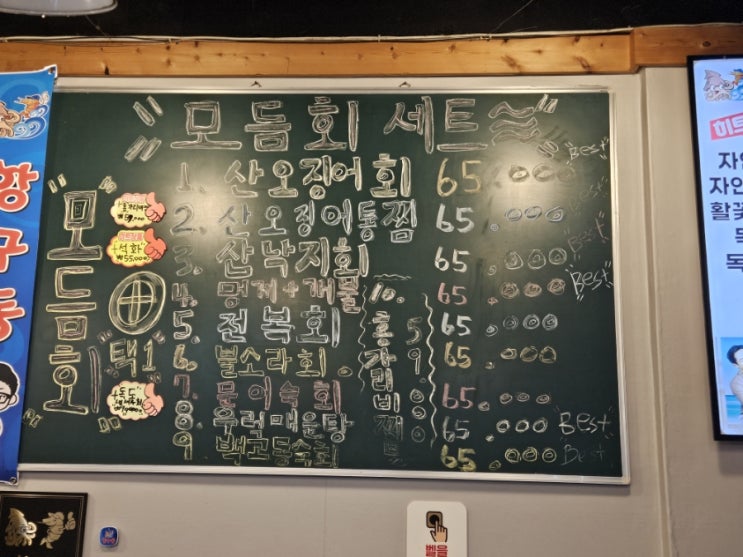 "모듬회 세트"
1. 산오징어회 65.000 Best
2. 산오징어통찜 65.000
3. 산낙지회 65.000
4. 멍게+개불 65.000 Best
5. 전복회 65.000
6. 뿔소라회 65.000
7. 문어숙회 65.000
8. 우럭매운탕 65.000 Best
9 백고동숙회 65.000 Best
10. 홍가리비찜
59.000
"모듬회 ⊕
"택1"
석화
₩55,000
+독도
황구동
히트
자연
자연
활꽃
독
독
벨을